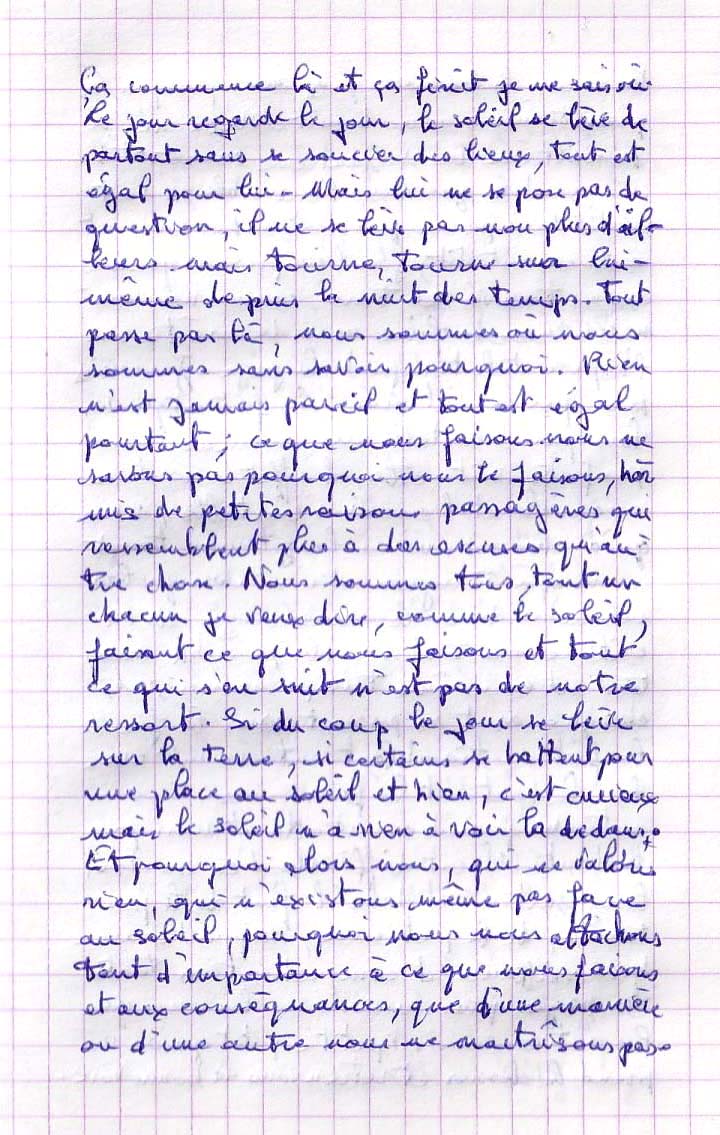 Ça commence là et ça finit je ne sais où.
Le jour regarde le jour, le soleil se lève de
partout sans se soucier des lieux, tout est
égal pour lui - Mais lui ne se pose pas de
question, il ne se lève pas non plus d'ail-
leurs mais tourne, tourne sur lui-
même depuis la nuit des temps. Tout
passe par là, nous sommes où nous
sommes sans savoir pourquoi. Rien
n'est jamais pareil et tout est égal
pourtant ; ce que nous faisons nous ne
savons pas pourquoi nous le faisons, hor
mis de petites raisons passagères qui
ressemblent plus à des excuses qu'au
tre chose. Nous sommes tous, tout un
chacun je veux dire, comme le soleil,
faisant ce que nous faisons et tout
ce qui s'en suit n'est pas de notre
ressort. Si du coup le jour se lève
sur la terre, si certains se battent pour
une place au soleil et bien, c'est curieux
mais le soleil n'a rien à voir la dedans.
Et pourquoi alors nous, qui ne valons
rien, qui n'existons même pas face
au soleil, pourquoi nous nous attachons
tant d'importance à ce que nous faisons
et aux conséquances, que d'une manière
ou d'une autre nous ne maîtrisons pas.